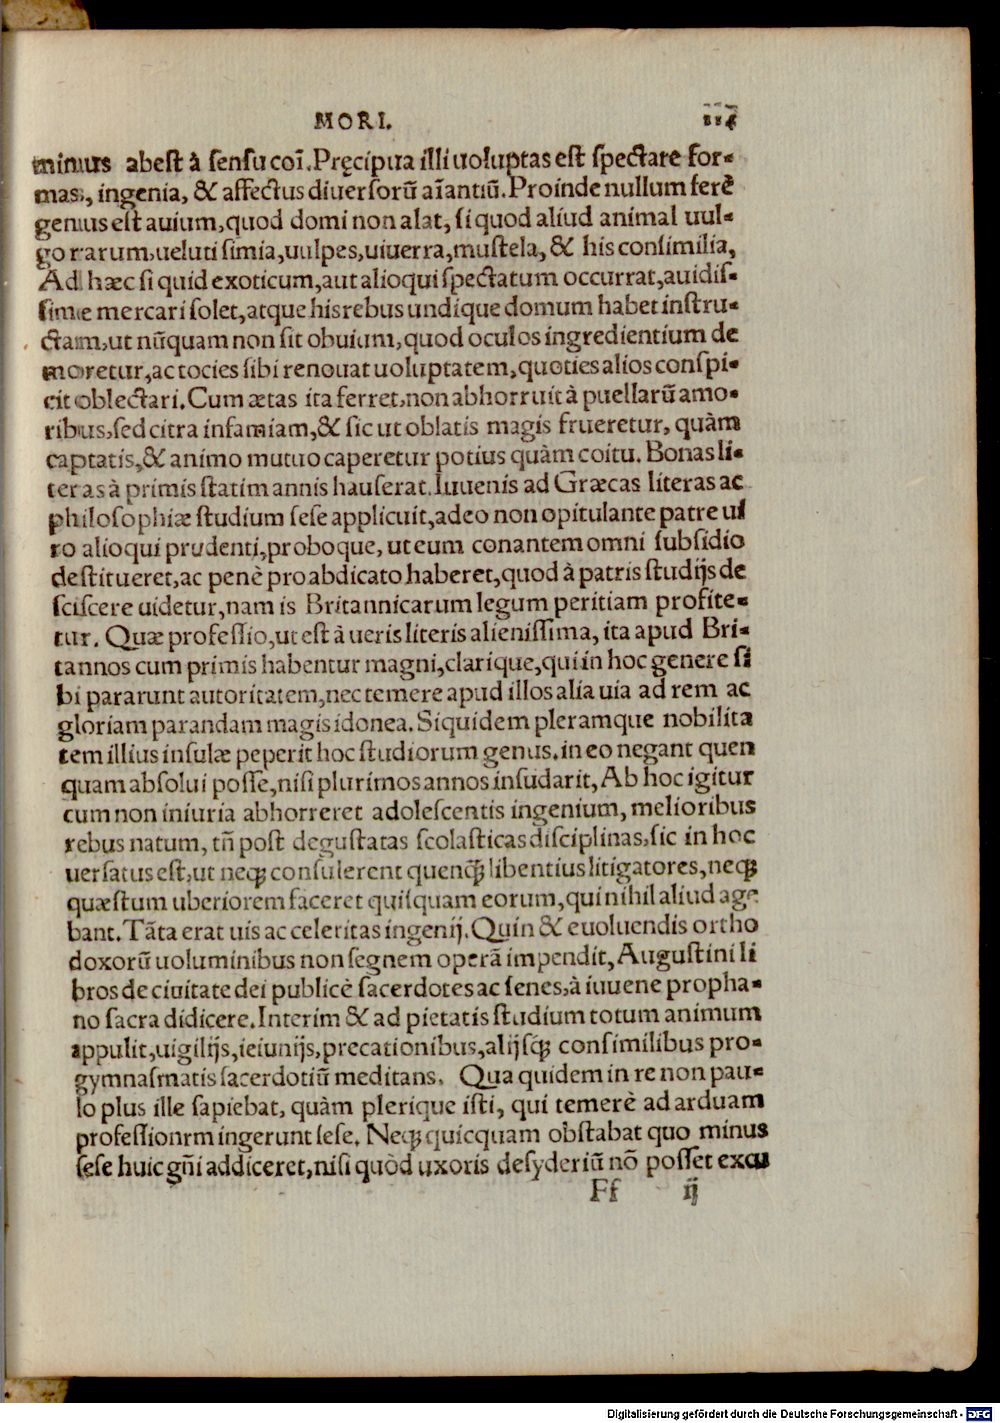 MORI. 114
minus abest à sensu coī. Pręcipua illi uoluptas est spectare for-
mas, ingenia, & affectus diuersorũ aīantiũ. Proinde nullum ferẽ
genus est auium, quod domi non alat, si quod aliud animal uul-
go rarum, ueluti simia, uulpes, uiuerra, mustela, & his consimilia,
Ad hæc si quid exoticum, aut alioqui spectatum occurrat, auidis-
sime mercari solet, atque his rebus undique domum habet instru-
ctam, ut nũquam non sit obuium, quod oculos ingredientium de
moretur, ac tocies sibi renouat uoluptatem, quoties alios conspi-
cit oblectari. Cum ætas ita ferret, non abhorruit à puellarũ amo-
ribus, sed citra infamiam, & sic ut oblatis magis frueretur, quàm
captatis, & animo mutuo caperetur potius quàm coitu. Bonas li-
teras à primis statim annis hauserat. Iuuenis ad Græcas literas ac
philosophiæ studium sese applicuit, adeo non opitulante patre ui
ro alioqui prudenti, proboque, ut eum conantem omni subsidio
destitueret, ac penè pro abdicato haberet, quod à patris studijs de
sciscere uidetur, nam is Britannicarum legum peritiam profite-
tur. Quæ professio, ut est à ueris literis alienissima, ita apud Bri-
tannos cum primis habentur magni, clarique, qui in hoc genere si
bi pararunt autoritatem, nec temere apud illos alia uia ad rem ac
gloriam parandam magis idonea. Siquidem pleramque nobilita
tem illius insulæ peperit hoc studiorum genus. in eo negant quen
quam absolui posse, nisi plurimos annos insudarit, Ab hoc igitur
cum non iniuria abhorreret adolescentis ingenium, melioribus
rebus natum, tñ post degustatas scolasticas disciplinas, sic in hoc
uersatus est, ut neqꝫ consulerent quenqꝫ̃ libentius litigatores, neqꝫ
quæstum uberiorem faceret quisquam eorum, qui nihil aliud age
bant. Tãta erat uis ac celeritas ingenij. Quin & euoluendis ortho
doxorũ uoluminibus non segnem operã impendit, Augustini li
bros de ciuitate dei publicè sacerdotes ac senes, à iuuene propha-
no sacra didicere. Interim & ad pietatis studium totum animum
appulit, uigilijs, ieiunijs, precationibus, alijsqꝫ consimilibus pro-
gymnasmatis sacerdotiũ meditans. Qua quidem in re non pau-
lo plus ille sapiebat, quàm plerique isti, qui temerè ad arduam
professionrm ingerunt sese. Neqꝫ quicquam obstabat quo minus
sese huic gñi addiceret, nisi quòd uxoris desyderiũ nõ posset excu
Ff ij
Digitalisierung gefördert durch die Deutsche Forschungsgemeinschaft - DFG